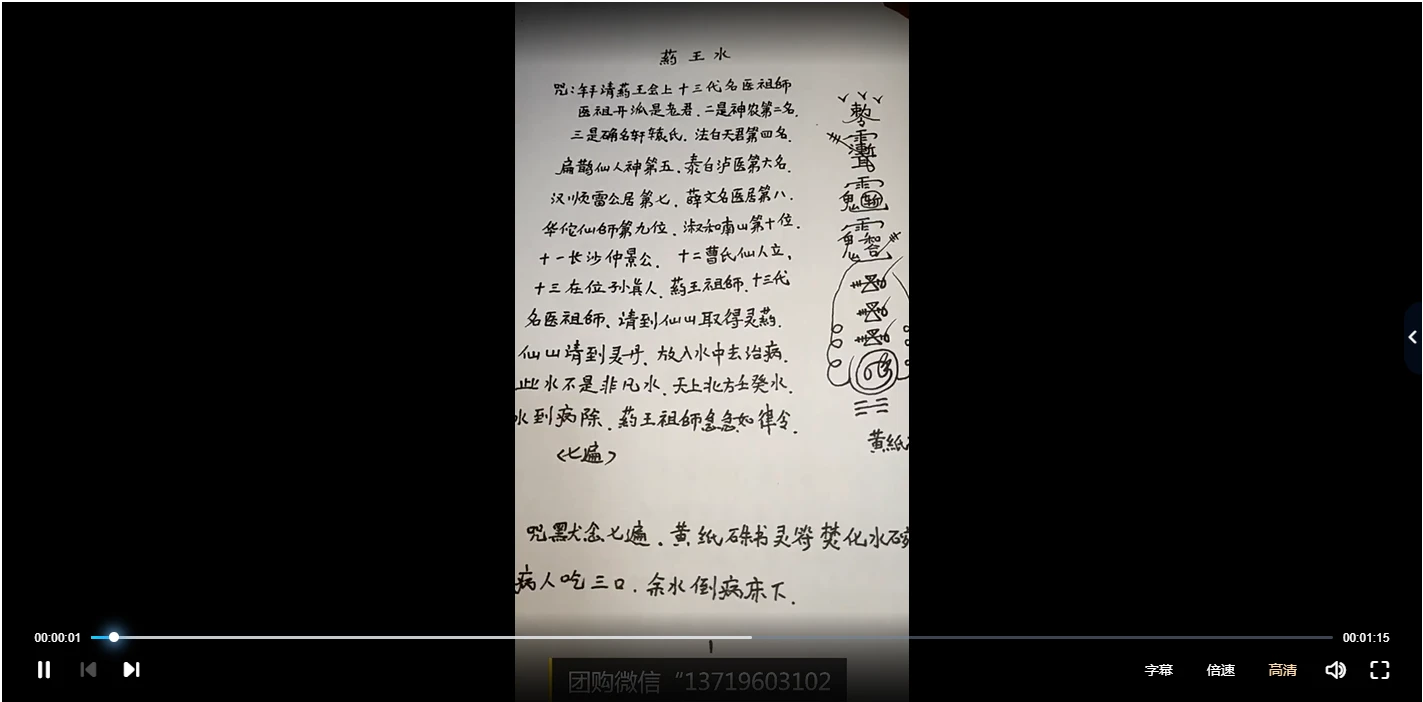 药王水
咒:奉请药王会上十三代名医祖師
医祖开派是老君.二是神农第二名.
三是确名轩辕氏.法白天君第四名.
扁鹊仙人神第五.泰白泸医第六名.
汉顺雷公居第七.薛文名医居第八.
华佗仙師第九位.淑和南山第十位.
十一长沙仲景公.十二曹氏仙人立.
十三在位孙真人.药王祖師.十三代
名医祖師、请到仙山取得灵药.
仙山请到灵丹.放入水中去治病.
此水不是非凡水.天上北方壬癸水.
水到病除.药王祖師急急如律令.
<七遍>
黄纸
咒默念七遍.黄纸硃书灵符焚化水碗
病人吃三口.余水倒病床下.
团购微信“13719603102
00:00:01
00:01:15
字幕
倍速
高清